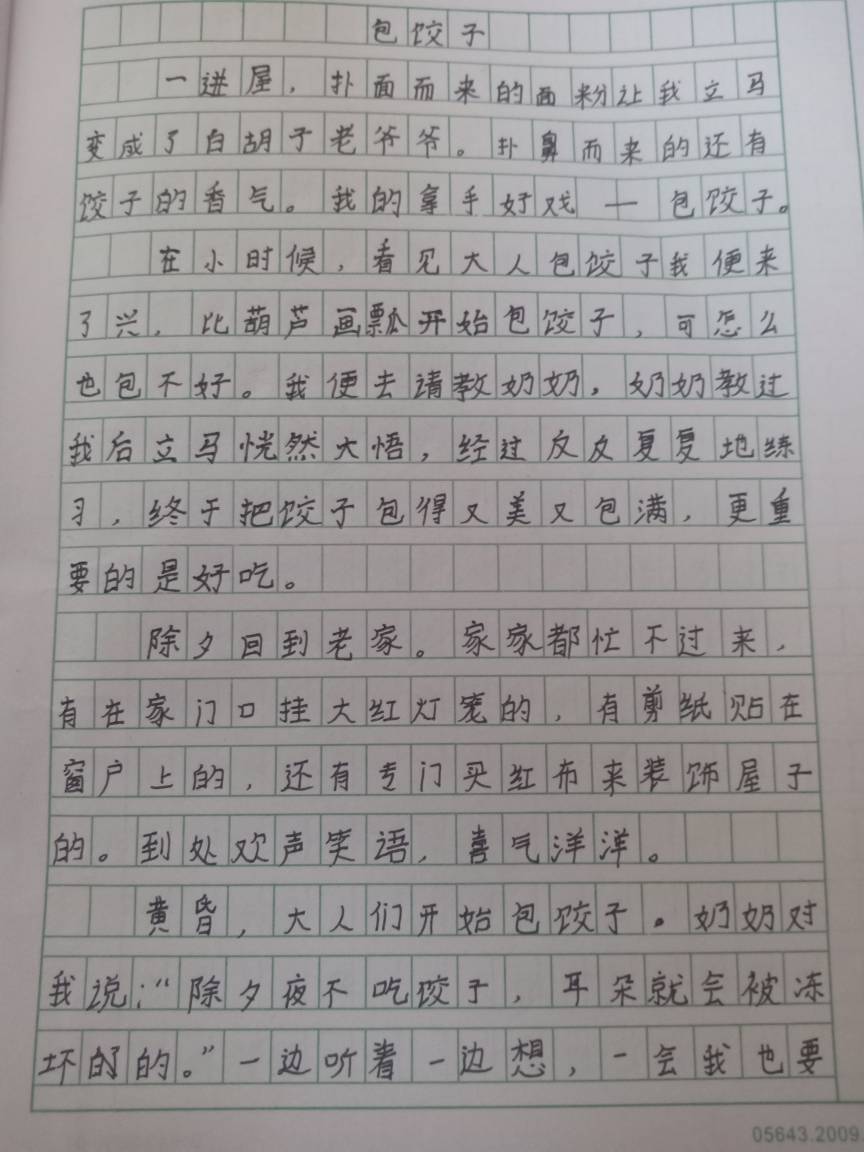 包饺子
一进屋，扑面而来的面粉让我立马
变成了白胡子老爷爷。扑鼻而来的还有
饺子的香气。我的拿手好戏一包饺子。
在小时候，看见大人包饺子我便来
了兴，比葫芦画瓢开始包饺子，可怎么
也包不好。我便去请教奶奶，奶奶教过
我后立马恍然大悟，经过反反复复地练
习，终于把饺子包得又美又包满，更重
要的是好吃。
除夕回到老家。家家都忙不过来，
有在家门口挂大红灯笼的，有剪纸贴在
窗户上的，还有专门买红布来装饰屋子
的。到处欢声笑语，喜气洋洋。
黄昏，大人们开始包饺子。奶奶对
我说：“除夕夜不吃饺子，耳朵就会被冻
坏的的。”一边听着一边想，一会我也要
05643.2009.